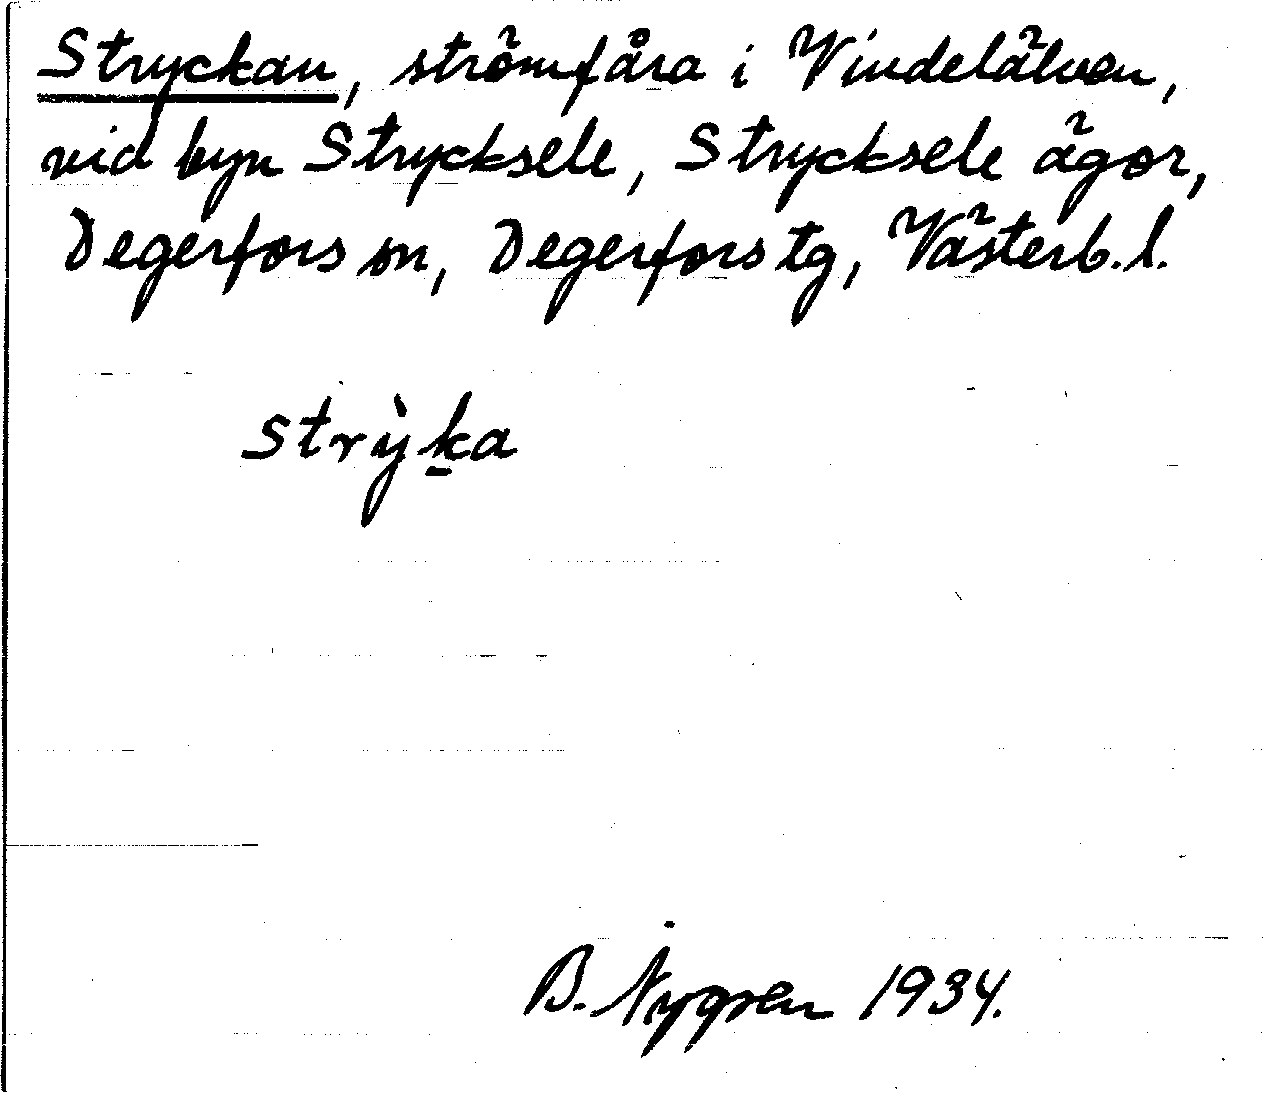 Stryckan, strömfåra i Vindelälven,
vid byn Strycksele, Strycksele ägor,
Degerfors sn, Degerfors tg, Västerb. l.
strỳk̠a
B. Nygren 1934.